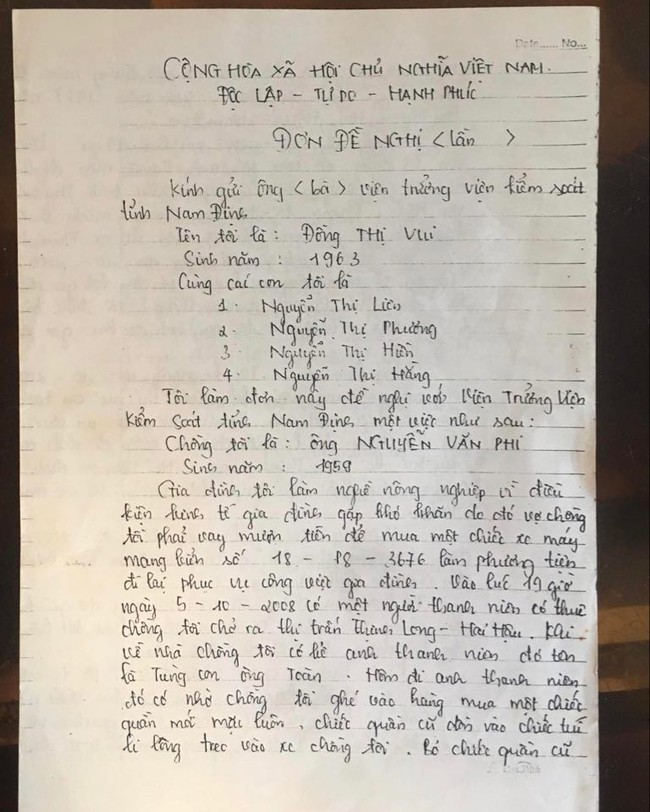 Date...... No...
CỘNG HÒA XÃ HỘI CHỦ NGHĨA VIỆT NAM.
ĐỘC LẬP - TỰ DO - HẠNH PHÚC
ĐƠN ĐỀ NGHỊ <lần >
Kính gửi ông <bà> viện trưởng viện kiểm soát
tỉnh Nam Định
Tên tôi là : Đồng Thị Vui
Sinh năm : 1963
Cùng các con tôi là
1. Nguyễn Thị Liên
2. Nguyễn Thị Phương
3 Nguyễn Thị Hiền
4. Nguyễn Thị Hằng
Tôi làm đơn này đề nghị với Viện Trưởng Viện
Kiểm Soát tỉnh Nam Định một việc như sau :
Chồng tôi là : ông NGUYỄN VĂN PHI
Sinh năm : 1959
Gia đình tôi làm nghề nông nghiệp vì điều
kiện kinh tế gia đình gặp khó khăn do đó vợ chồng
tôi phải vay mượn tiền để mua một chiếc xe máy
mang biển số 18 - P8 - 3676 làm phương tiện
đi lại phục vụ công việc gia đình. Vào lúc 19 giờ
ngày 5 - 10 - 2008 có một người thanh niên có thuê
chồng tôi chở ra thị trấn Thịnh Long - Hải Hậu. Khi
về nhà chồng tôi có kể anh thanh niên đó tên
là Tùng con ông Toàn. Hôm đi anh thanh niên
đó có nhờ chồng tôi ghé vào hàng mua một chiếc
quần mới mặc luôn, chiếc quần cũ dồn vào chiếc túi
li lông treo vào xe chồng tôi. Bỏ chiếc quần cũ